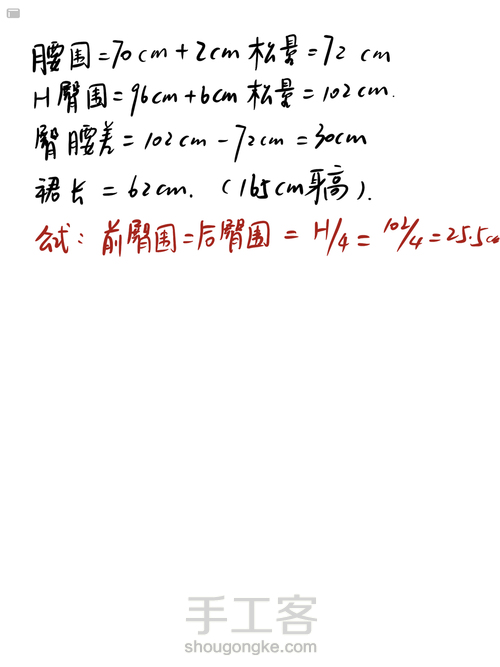 腰围=70cm+2cm松量=72 cm
H臀围=96cm+6cm松量=102cm.
臀腰差=102cm-72cm=30cm
裙长=62cm.（165cm身高）.
公式：前臀围=后臀围=H/4=102/4=25.5cm
手工客
shougongke.com